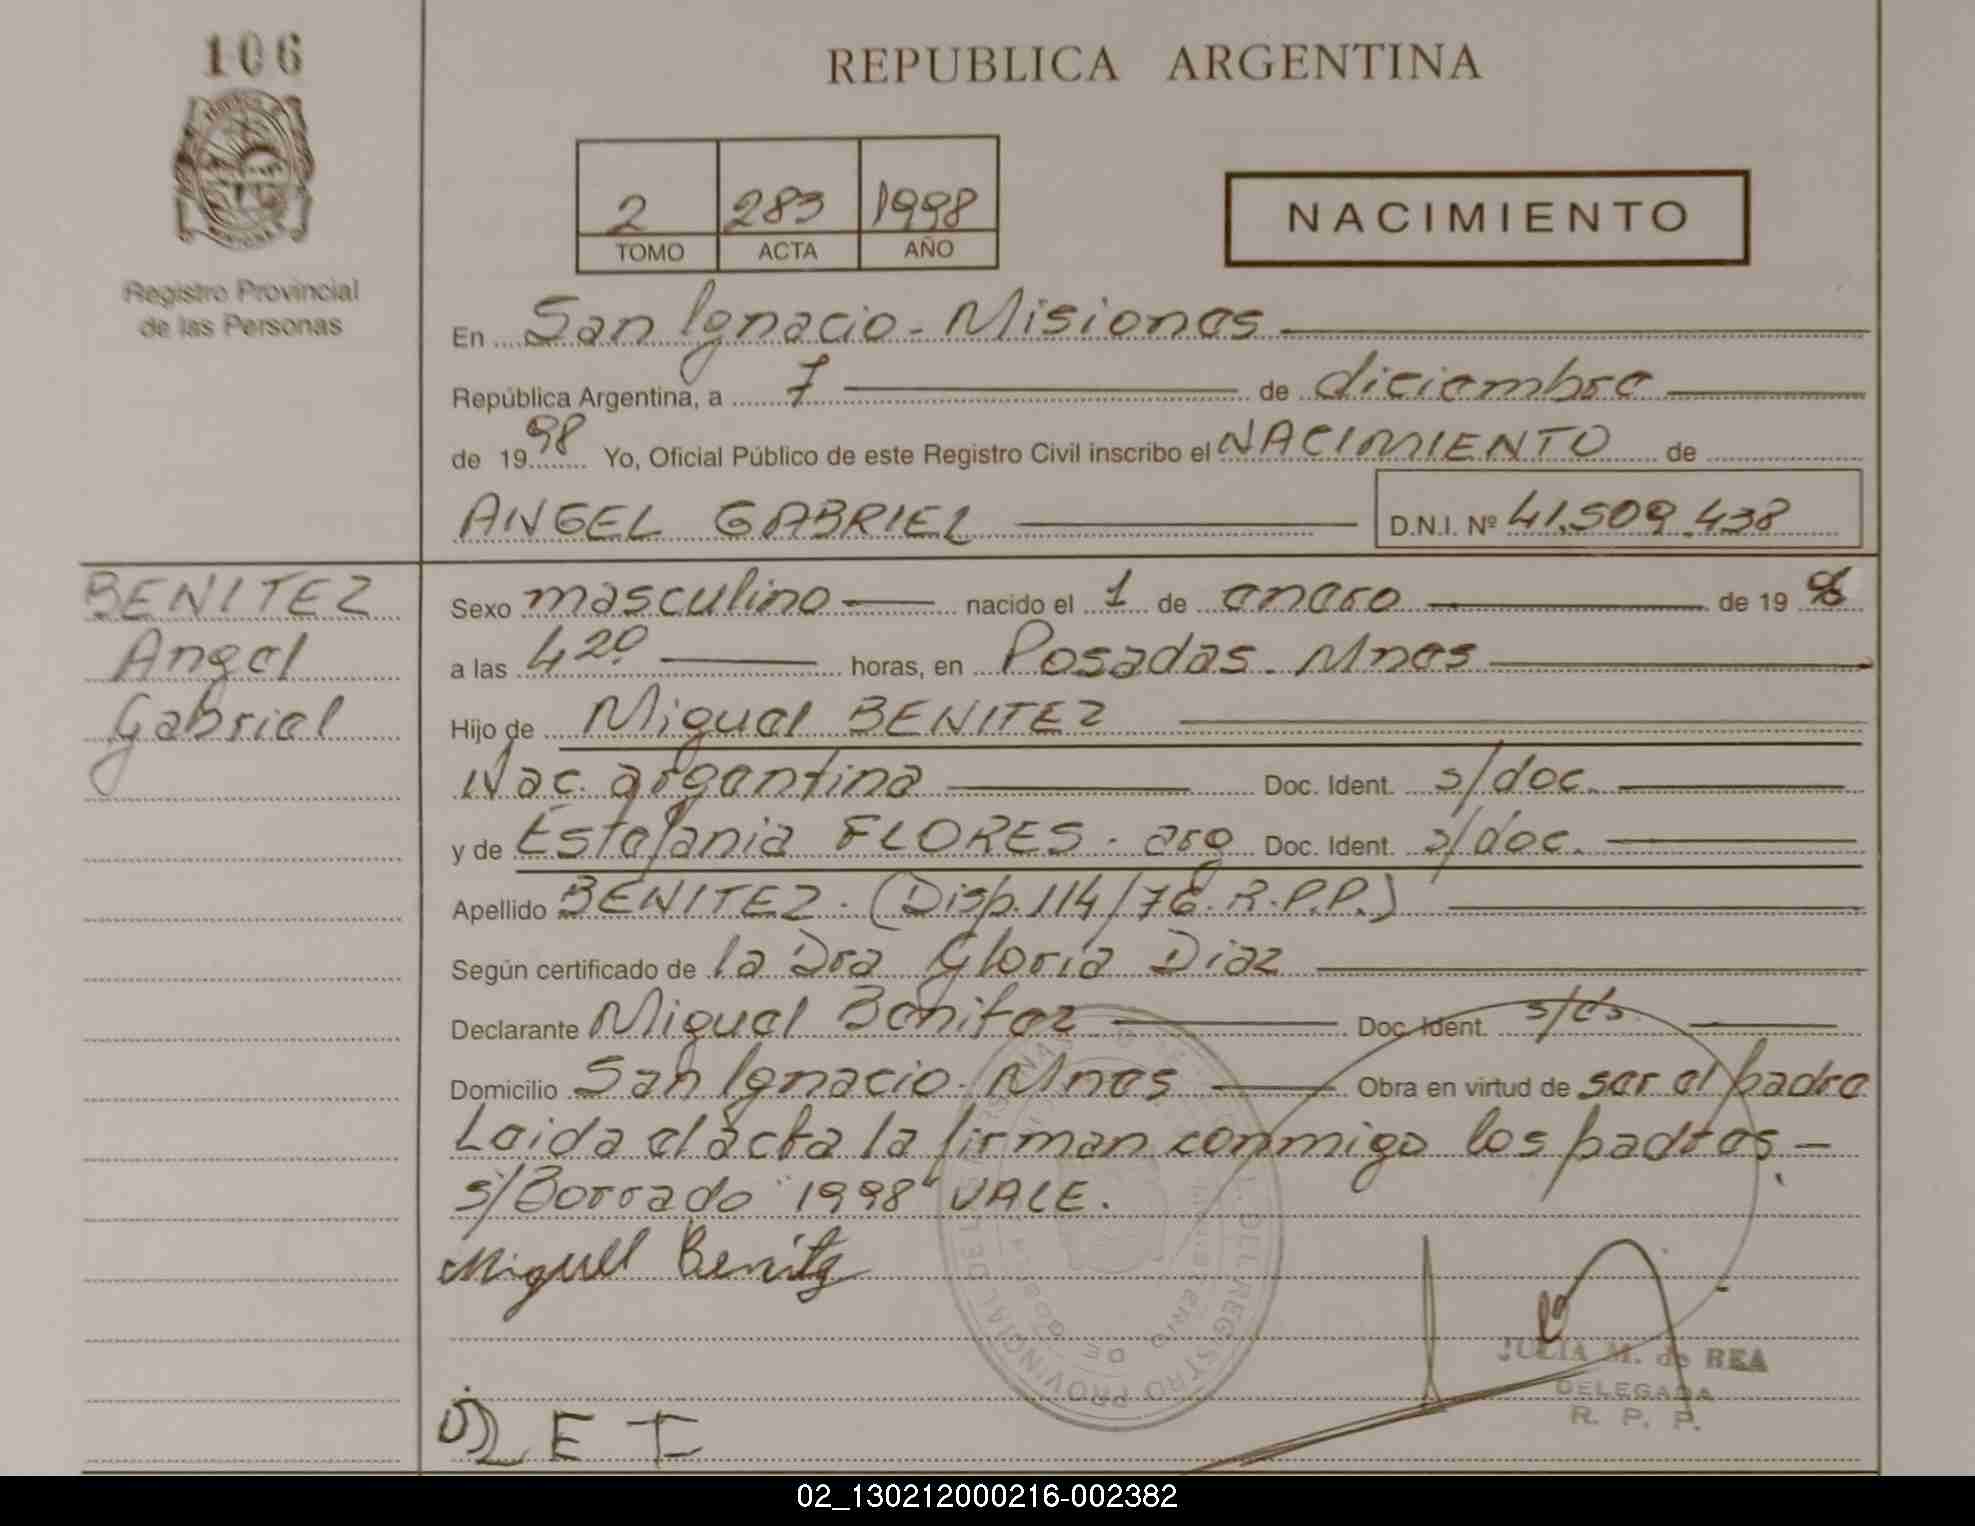 106
REPUBLICA ARGENTINA
2 283 1998
TOMO ACTA AÑO
NACIMIENTO
Registro Provincial
de las Personas
En San Ignacio - Misiones
República Argentina, a 7 de diciembre
de 1998 Yo, Oficial Público de este Registro Civil inscribo el NACIMIENTO de
ANGEL GABRIEL D.N.I. Nº 41.509.438
BENITEZ
Angel
Gabriel
Sexo masculino nacido el 1 de enero de 19
a las 4 20 horas, en Posadas. Mnes
Hijo de Miguel BENITEZ
Nac. argentina Doc. Ident. s/doc.
y de Estefania FLORES. arg Doc. Ident. s/doc.
Apellido BENITEZ. (Disp. 114/76. R.P.P.)
Según certificado de la Dra Gloria Diaz
Declarante Miguel Benitez Doc. Ident.
Domicilio San Ignacio. Mnes Obra en virtud de ser el padre
Leida el acta la firman conmigo los padres. -
s/Borrado "1998" VALE.
Miguel Benitz
DEL REGISTRO PROVINCIAL DE
JULIA M. de REA
DELEGADA
R. P. P.
02_130212000216-002382